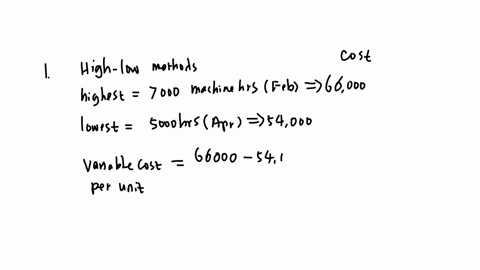 cost
1. High-low methods
highest = 7000 machine hrs (Feb) => 66,000
lowest = 5000 hrs (Apr) => 54,000
Variable cost = 66000 - 54,
per unit